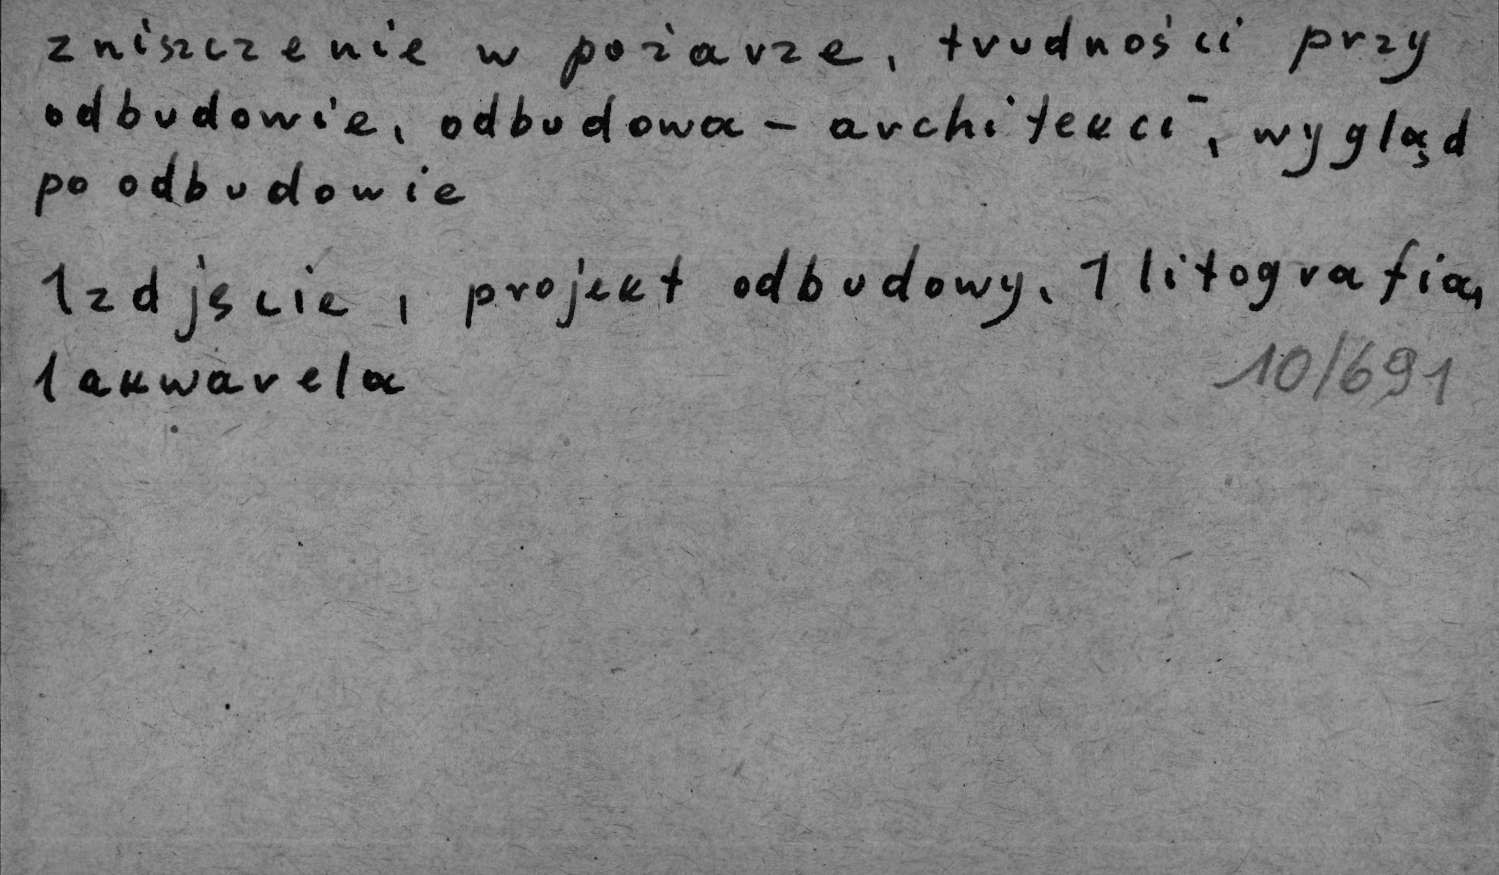 zniszczenie w pożarze, trudności przy
odbudowie, odbudowa - architekci, wygląd
po odbudowie
1 zdjście, projekt odbudowy, 1 litografia,
1 akwarela
10/691